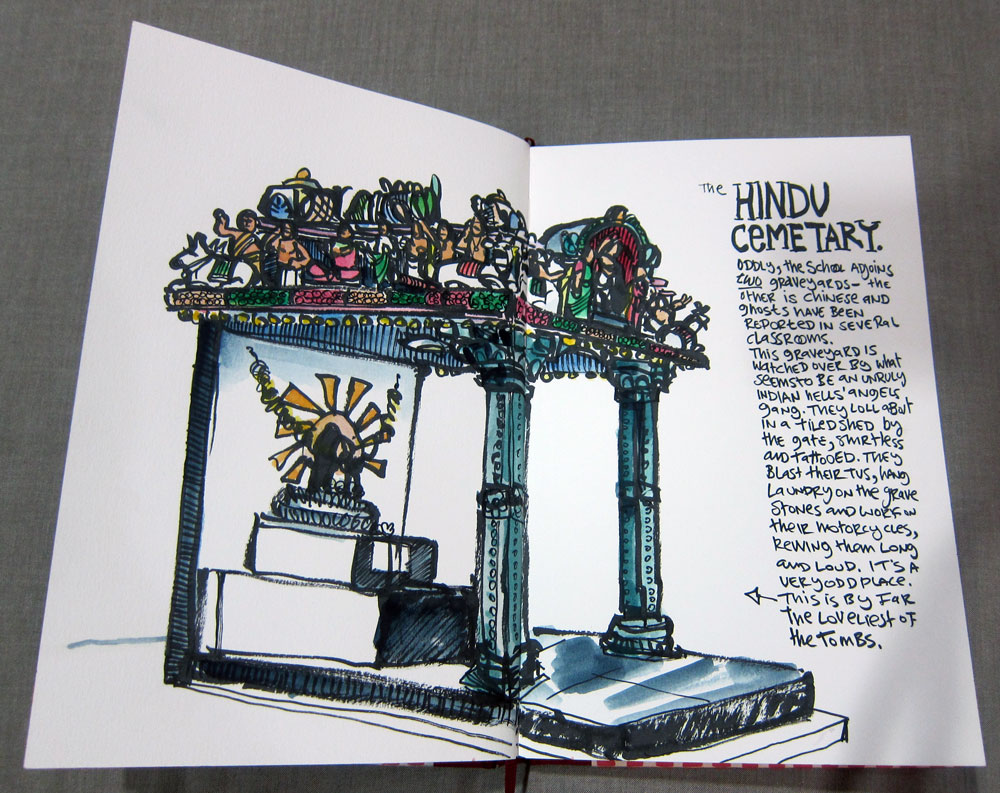 The HINDU
CEMETARY.
ODDLY, the School ADJOINS
two graveyards – the
other is Chinese and
ghosts have been
reported in several
classrooms.
This graveyard is
watched over by what
seems to be an unruly
Indian Hells' Angels
gang. They loll about
in a tiled shed by
the gate, shirtless
and tattooed. They
Blast their TVs, hang
Laundry on the grave
stones and work on
their motorcycles,
Revving them long
and loud. It's a
very odd place.
This is by far
the loveliest of
the tombs.